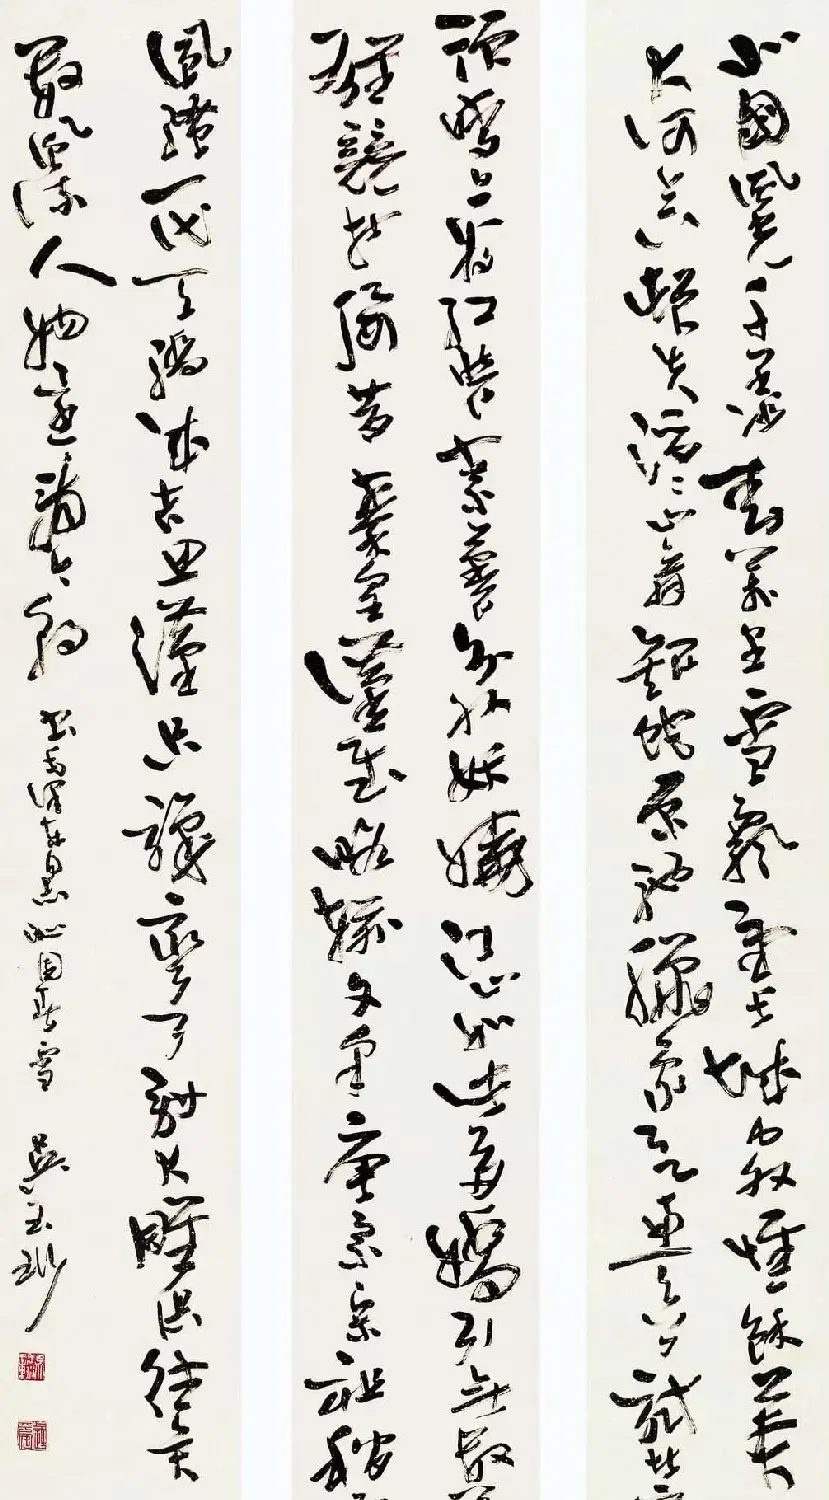 北國風光千里冰封萬里雪飄望長城內外惟餘莽
大河上下頓失滔滔山舞銀蛇原馳臘象欲與天公試比
須晴日看紅裝素裹分外妖嬈江山如此多嬌引無數
雄競折腰惜秦皇漢武略輸文采唐宗宋祖稍
風騷一代天驕成吉思漢只識彎弓射大雕俱往矣
數風流人物還看今朝 書毛澤東詞沁園春雪 吳玉